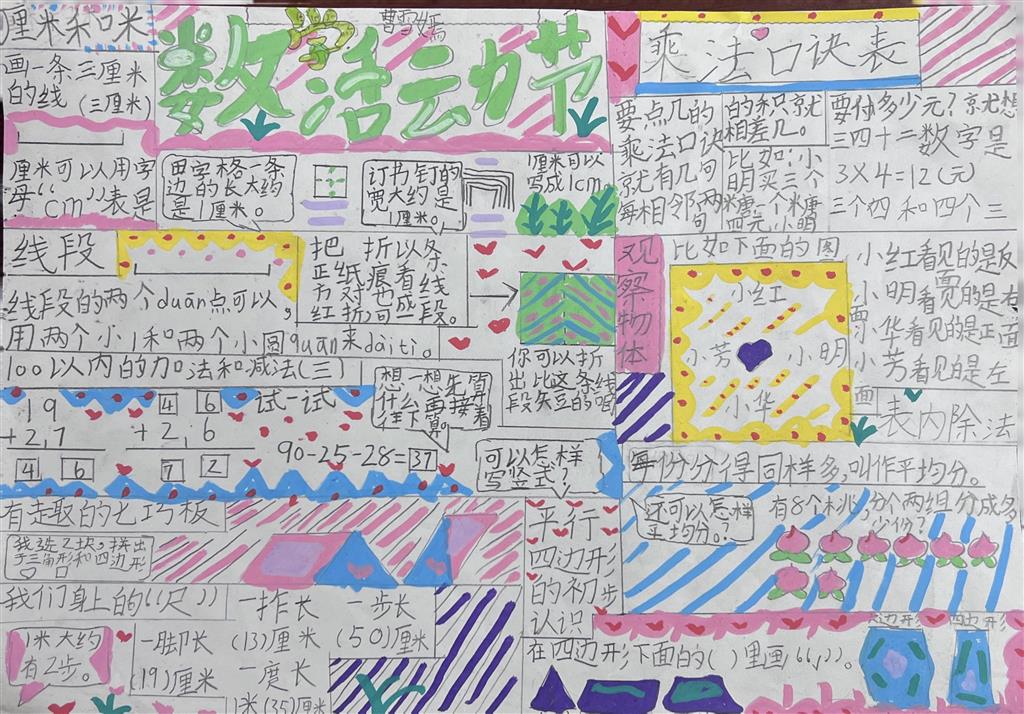 厘米和米
画一条三厘米
的线(三厘米)
厘米可以用字
母“cm”表是
数学活动节
曹雪嫣
田字格一条
边的长大约
是1厘米。
订书钉的
宽大约是
1厘米。
1厘米可以
写成1cm。
乘法口诀表
要点几的
乘法口诀
就有几句
每相邻两句
的积就
相差几。
比如:小
明买三个
糖一个糖
四元小明
要付多少元?就想
三四十二数字是
3X4=12(元)
三个四和四个三
线段
线段的两个duān点可以
用两个小1和两个小圆quān来dàití。
把正方红
纸对折
折痕也可
以看成一
条线段。
你可以折
出比这条线
段矢豆的吗
观察物体
比如下面的图
小红
小芳
小明
小华
小红看见的是反面
小明看见的是右面
小华看见的是正面
小芳看见的是左面
100以内的加法和减法(三)
19
+2,7
4 6
4 6
+2,6
7 2
试一试
90-25-28=37
想一想先算
什么再接着
往下算。
可以怎样
写竖式?
表内除法
每份分得同样多,叫作平均分。
还可以怎样
平均分?
有8个桃,分个两组分成多
少份?
有走取的七巧板
我选2块,拼出
了三角形和四边形
我们身上的“尺”
1米大约
有2步。
一拃长
(13)厘米
一步长
(50)厘米
一脚长
(19)厘米
一度长
1米(35)厘米
平行
四边形
的初步
认识
在四边形下面的( )里画“,”。
边形
四边形